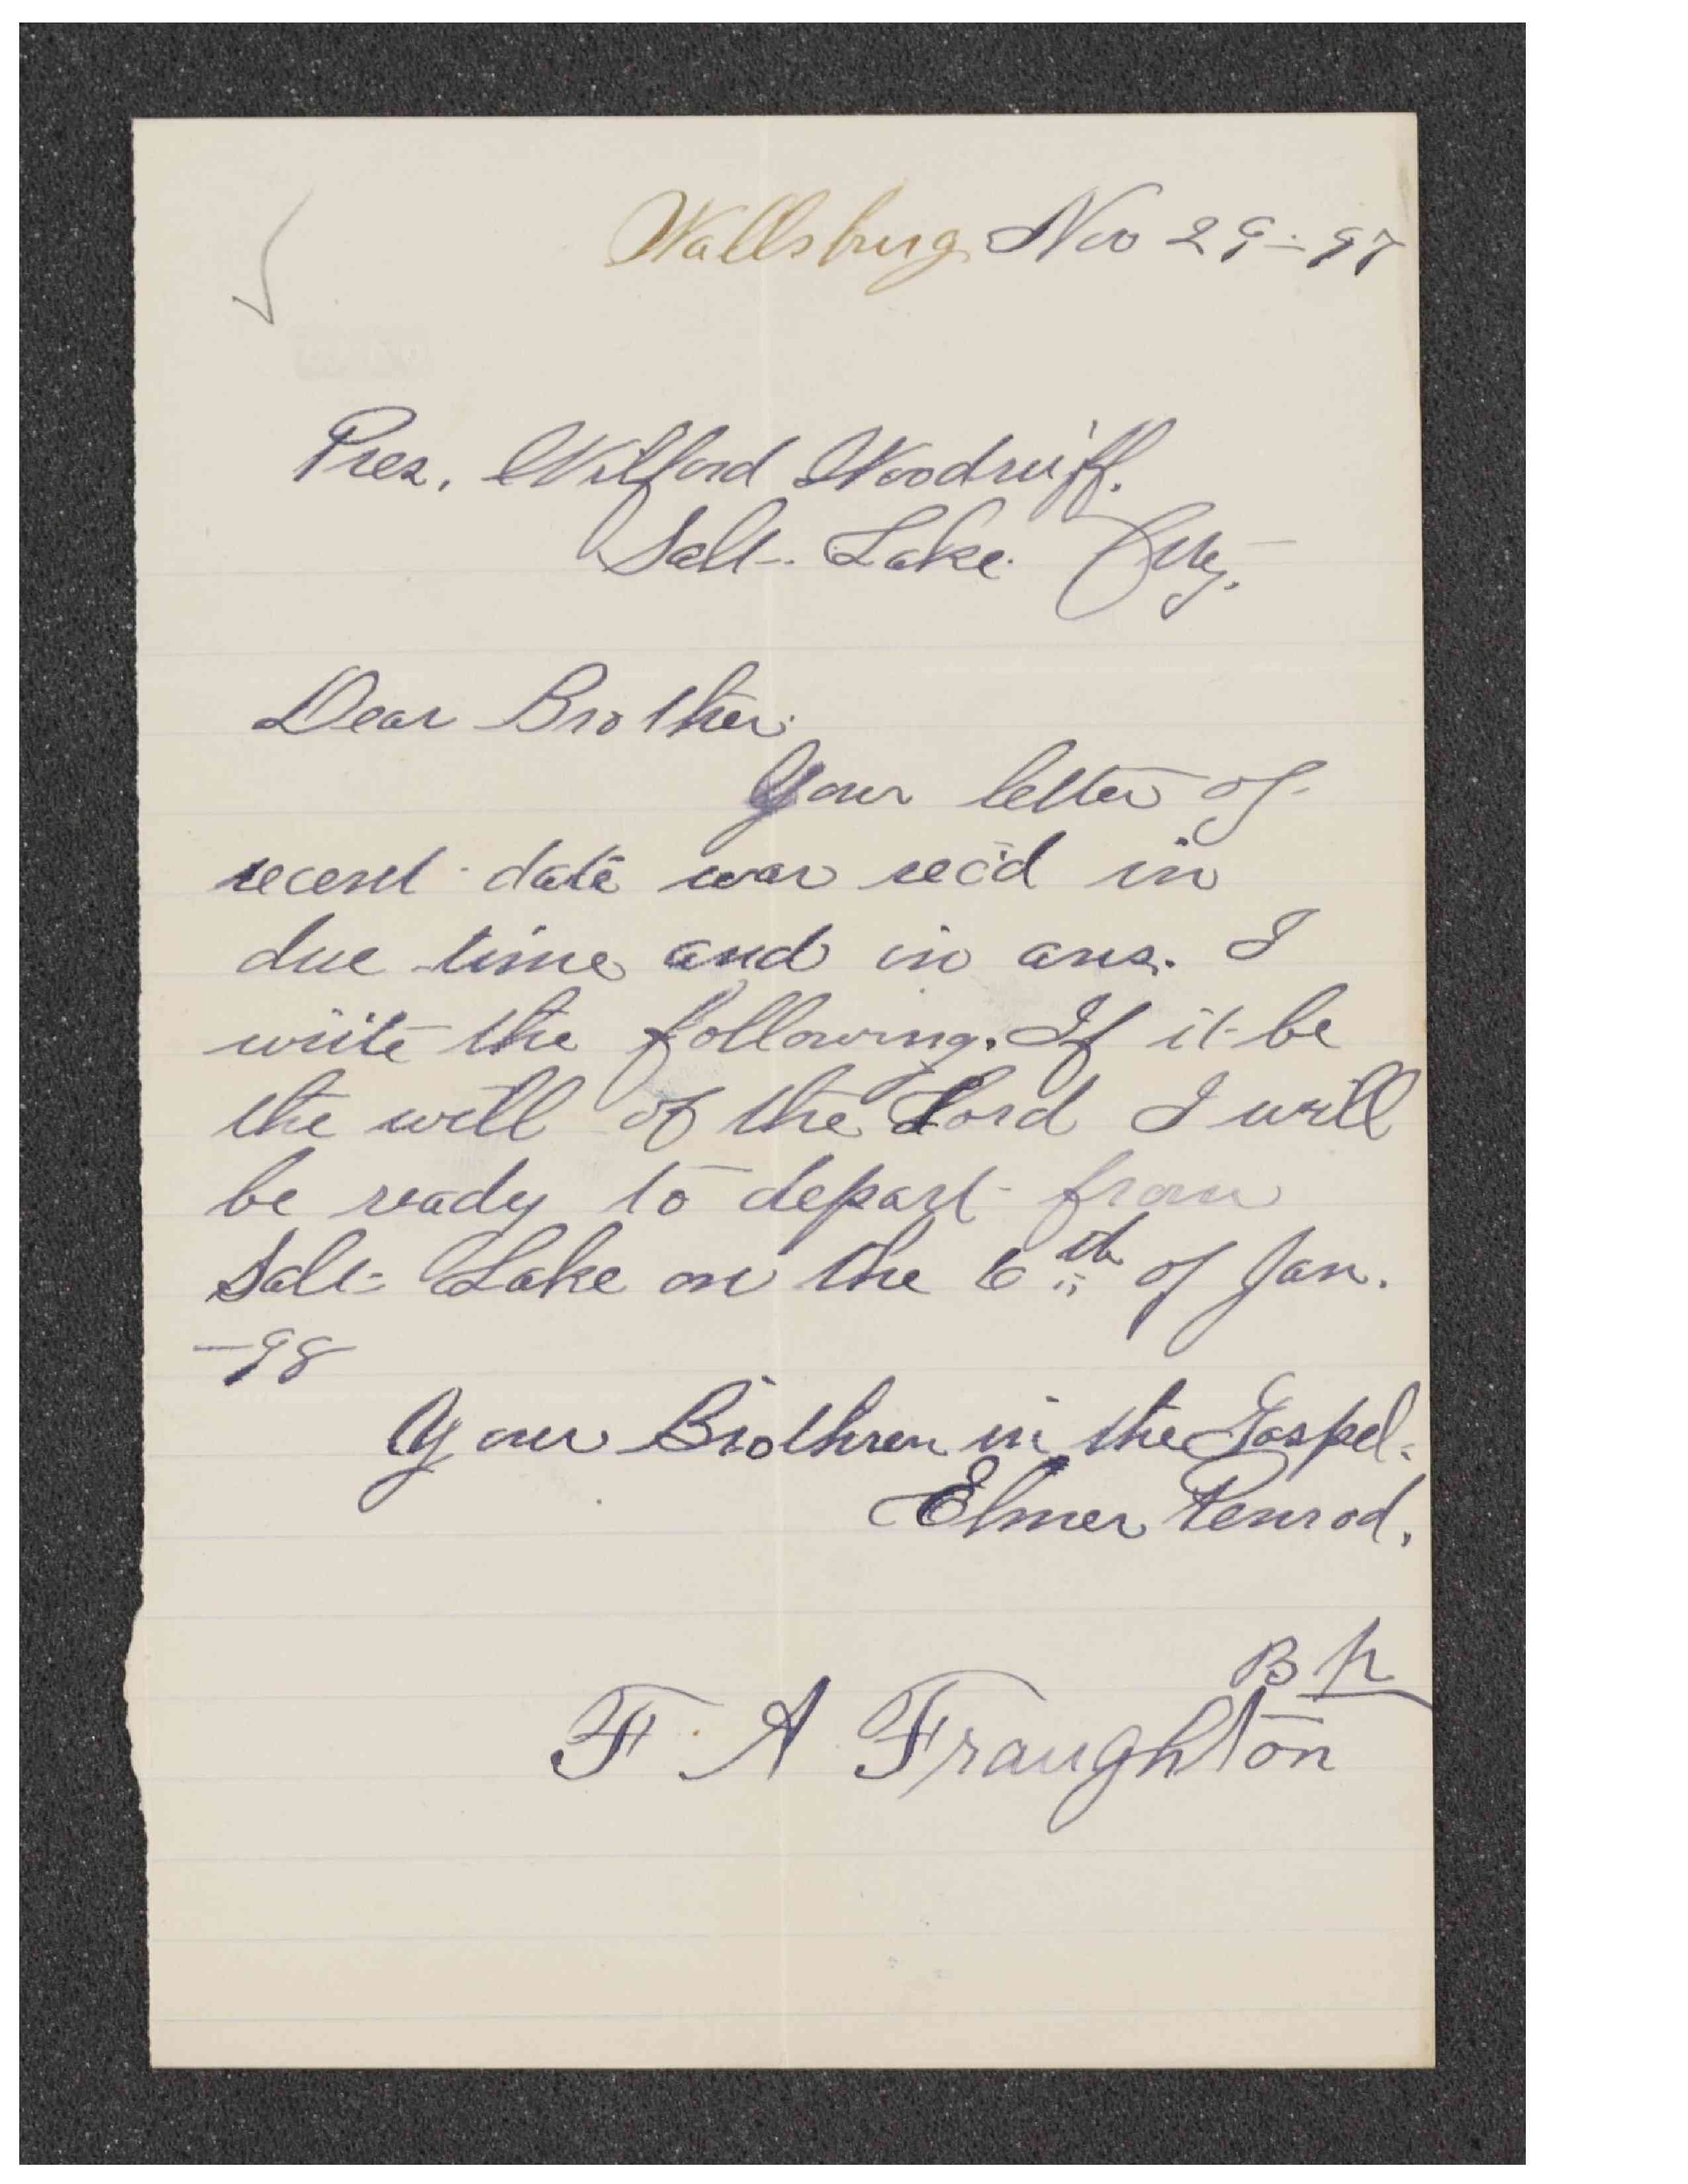 Wallsburg Nov 29-97
Pres. Wilford Woodruff.
Salt Lake City.
Dear Brother:
Your letter of
recent date was rec'd in
due time and in ans. I
write the following. If it be
the will of the Lord I will
be ready to depart from
Salt Lake on the 6th of Jan.
-98
Your Brothren in the Gospel.
Elmer Penrod.
Bp
F. A Fraughton